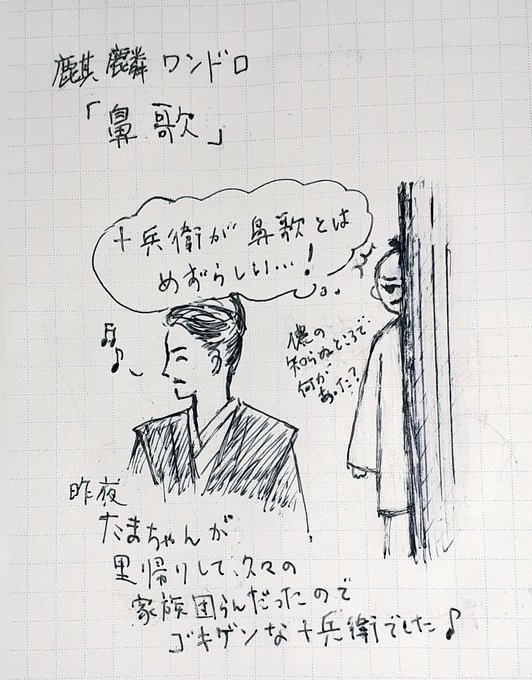 麒麟ワンドロ
「鼻歌」
十兵衛が鼻歌とは
めずらしい…!
儂の
知らぬところで、
何が
あった?
昨夜
たまちゃんが
里帰りして、久々の
家族団らんだったので
ゴキゲンな十兵衛でした♪